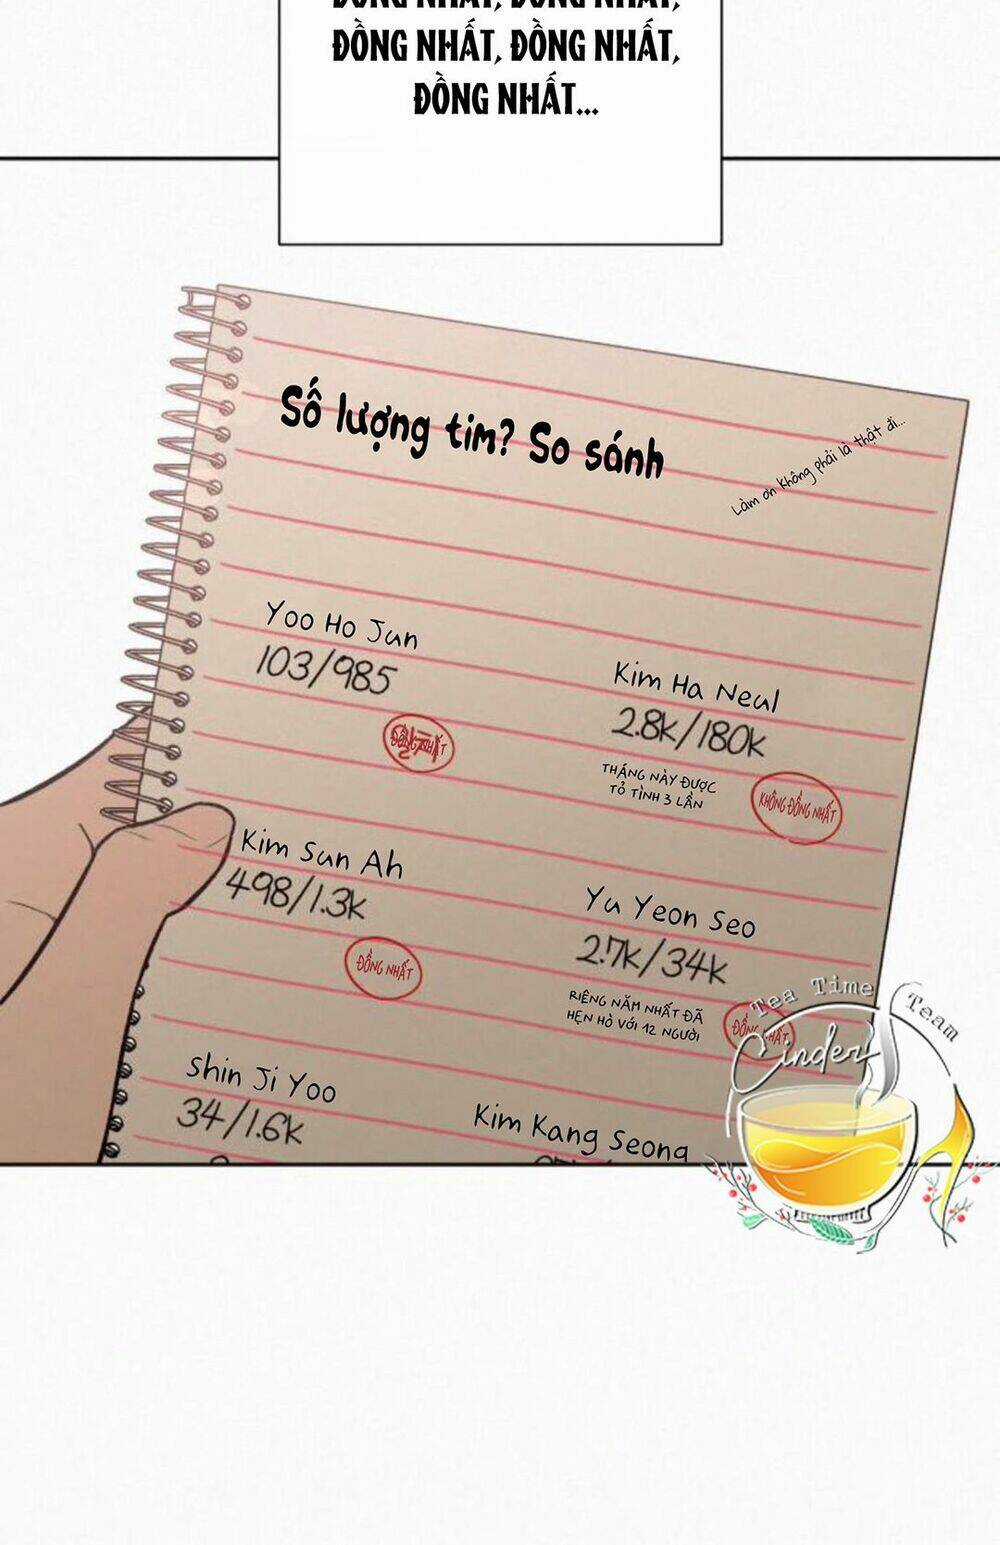 ĐỒNG NHẤT, ĐỒNG NHẤT,
ĐỒNG NHẤT, ĐỒNG NHẤT,
ĐỒNG NHẤT...
Số lượng tim? So sánh
Làm ơn không phải là thật đi...
Yoo Ho Jun
103/985
Kim Ha Neul
2.8k/180k
THÁNG NÀY ĐƯỢC
TỎ TÌNH 3 LẦN
KHÔNG ĐỒNG NHẤT
Kim Sun Ah
498/1.3k
ĐỒNG NHẤT
Yu Yeon Seo
2.7k/34k
RIÊNG NĂM NHẤT ĐÃ
HẸN HÒ VỚI 12 NGƯỜI
ĐỒNG NHẤT
Shin Ji Yoo
34/1.6k
Kim Kang Seong
Tea Time
Team
Cinder